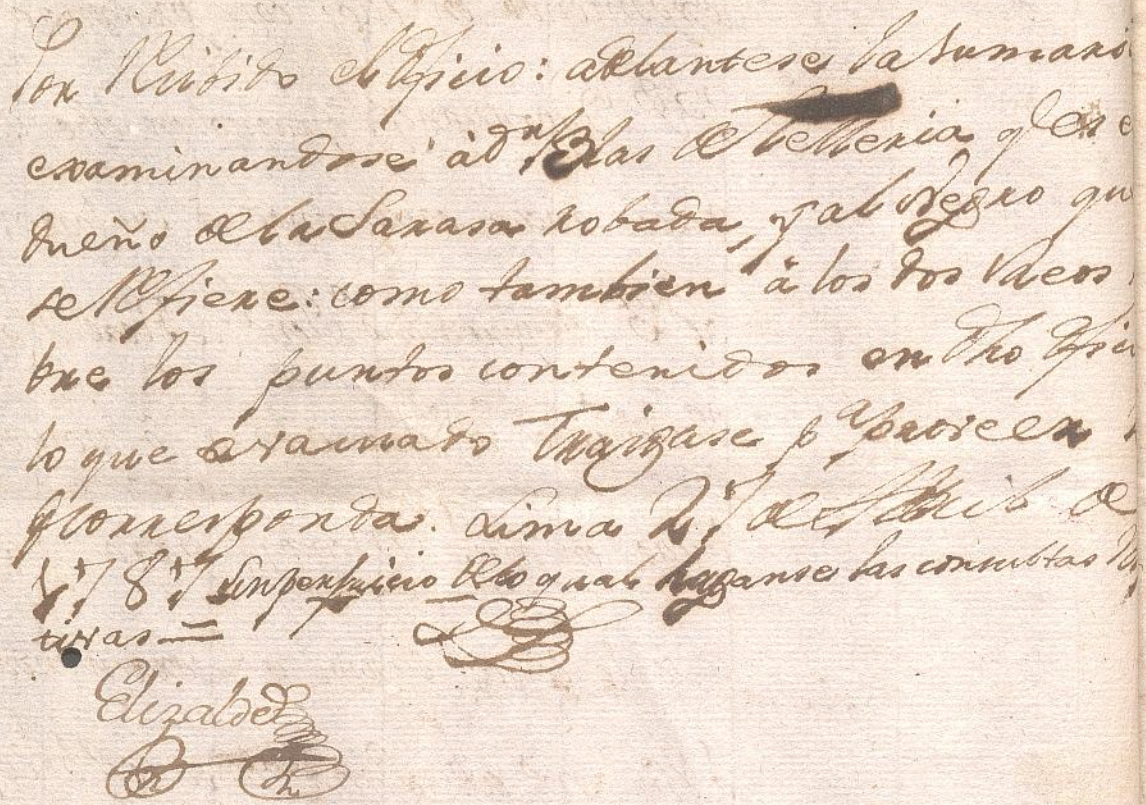 Por Recibido el Oficio: adelantese la Sumari
examinandose à dn Blas de Telleria qe es e
dueño de la Sarasa robada, y al Negro qu
se Refiere: como tambien à los dos Reos
bre los puntos contenidos en dho Ofici
lo que evacuado Traigase pa proveer
qe corresponda. Lima 27 de Abril de
1787 Sin perjuicio de lo qual haganse las consultas
tivas =
Elizalde